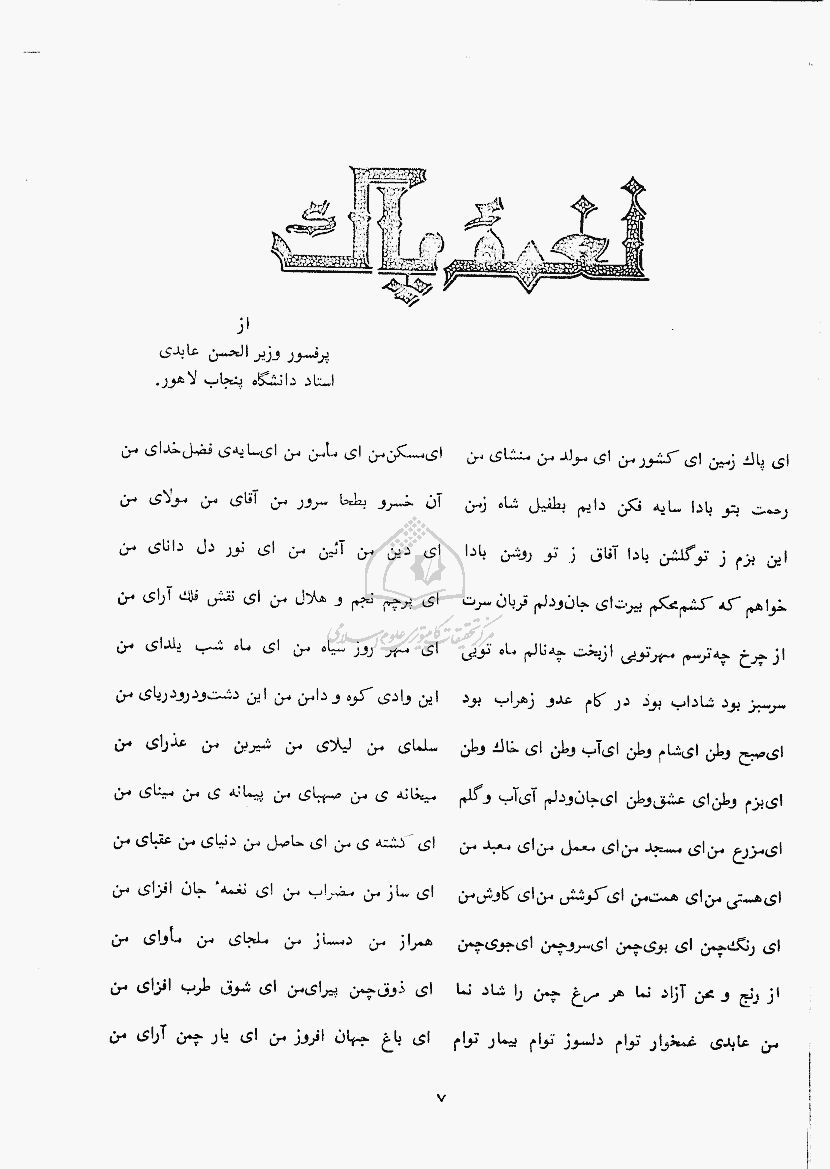 نغمهٔ پاک
از
پرفسور وزیر الحسن عابدی
استاد دانشگاه پنجاب لاهور.
ای پاك زمین ای کشور من ای مولد من منشای من ای‌مسکن‌من ای مأمن من ای‌سایه‌ی فضل‌خدای من
رحمت بتو بادا سایه فکن دایم بطفیل شاه زمن آن خسرو بطحا سرور من آقای من مولای من
این بزم ز توگلشن بادا آفاق ز تو روشن بادا ای دین من آئین من ای نور دل دانای من
خواهم که کشم‌محکم ببرت‌ای جان‌ودلم قربان سرت ای پرچم نجم و هلال من ای نقش فلك آرای من
از چرخ چه‌ترسم مهرتویی ازبخت چه‌نالم ماه تویی ای مهر روز سیاه من ای ماه شب یلدای من
سرسبز بود شاداب بود در کام عدو زهراب بود این وادی کوه و دامن من این دشت‌ورودریای من
ای‌صبح وطن ای‌شام وطن ای‌آب وطن ای خاك وطن سلمای من لیلای من شیرین من عذرای من
ای‌بزم وطن‌ای عشق‌وطن ای‌جان‌ودلم آی‌آب وگلم میخانه ی من صهبای من پیمانه ی من مینای من
ای‌مزرع من‌ای مسجد من‌ای معمل من‌ای معبد من ای کشته ی من ای حاصل من دنیای من عقبای من
ای‌هستی من‌ای همت‌من ای‌کوشش من‌ای کاوش‌من ای ساز من مضراب من ای نغمهٔ جان افزای من
ای رنگ‌چمن ای بوی‌چمن ای‌سروچمن ای‌جوی‌چمن همراز من دمساز من ملجای من مأوای من
از رنج و محن آزاد نما هر مرغ چمن را شاد نما ای ذوق‌چمن پیرای‌من ای شوق طرب افزای من
من عابدی غمخوار توام دلسوز توام بیمار توام ای باغ جهان افروز من ای یار چمن آرای من
۷
مرکز تحقیقات کامپیوتری علوم اسلامی